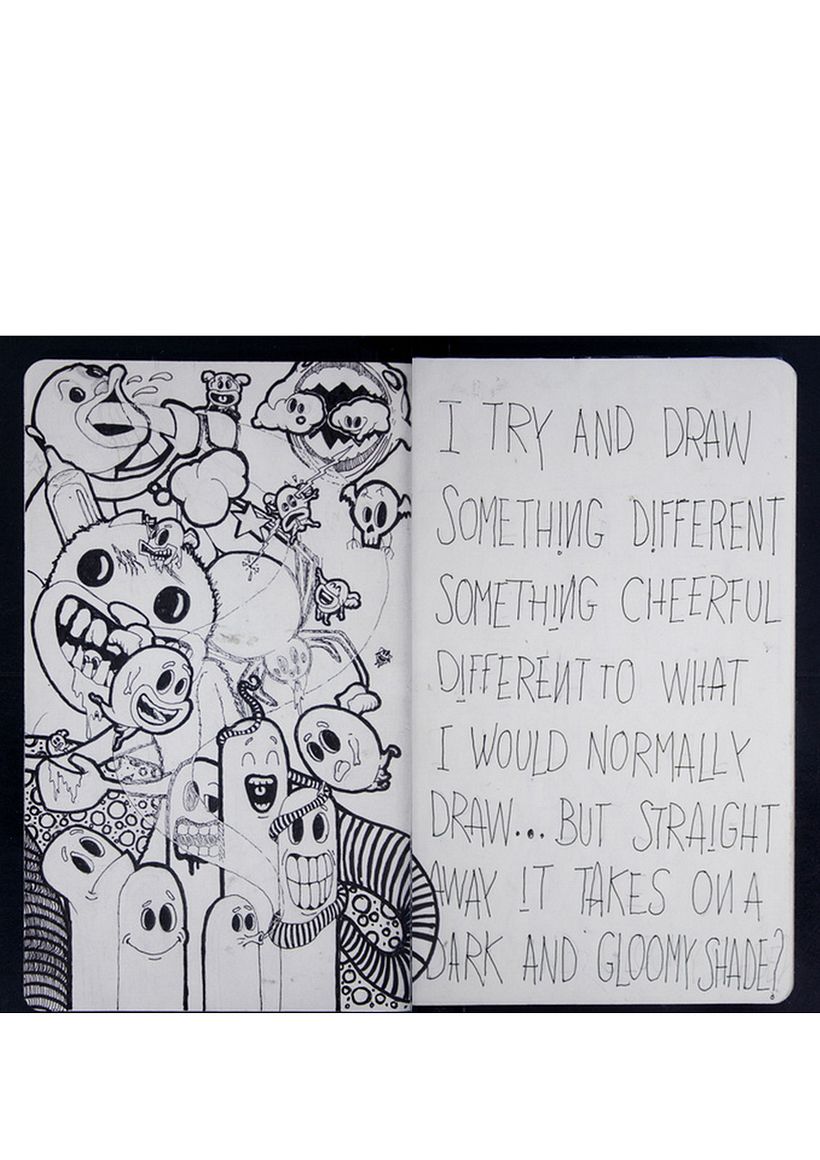 I TRY AND DRAW
SOMETHING DIFFERENT
SOMETHING CHEERFUL
DIFFERENT TO WHAT
I WOULD NORMALLY
DRAW... BUT STRAIGHT
AWAY IT TAKES ON A
DARK AND GLOOMY SHADE?